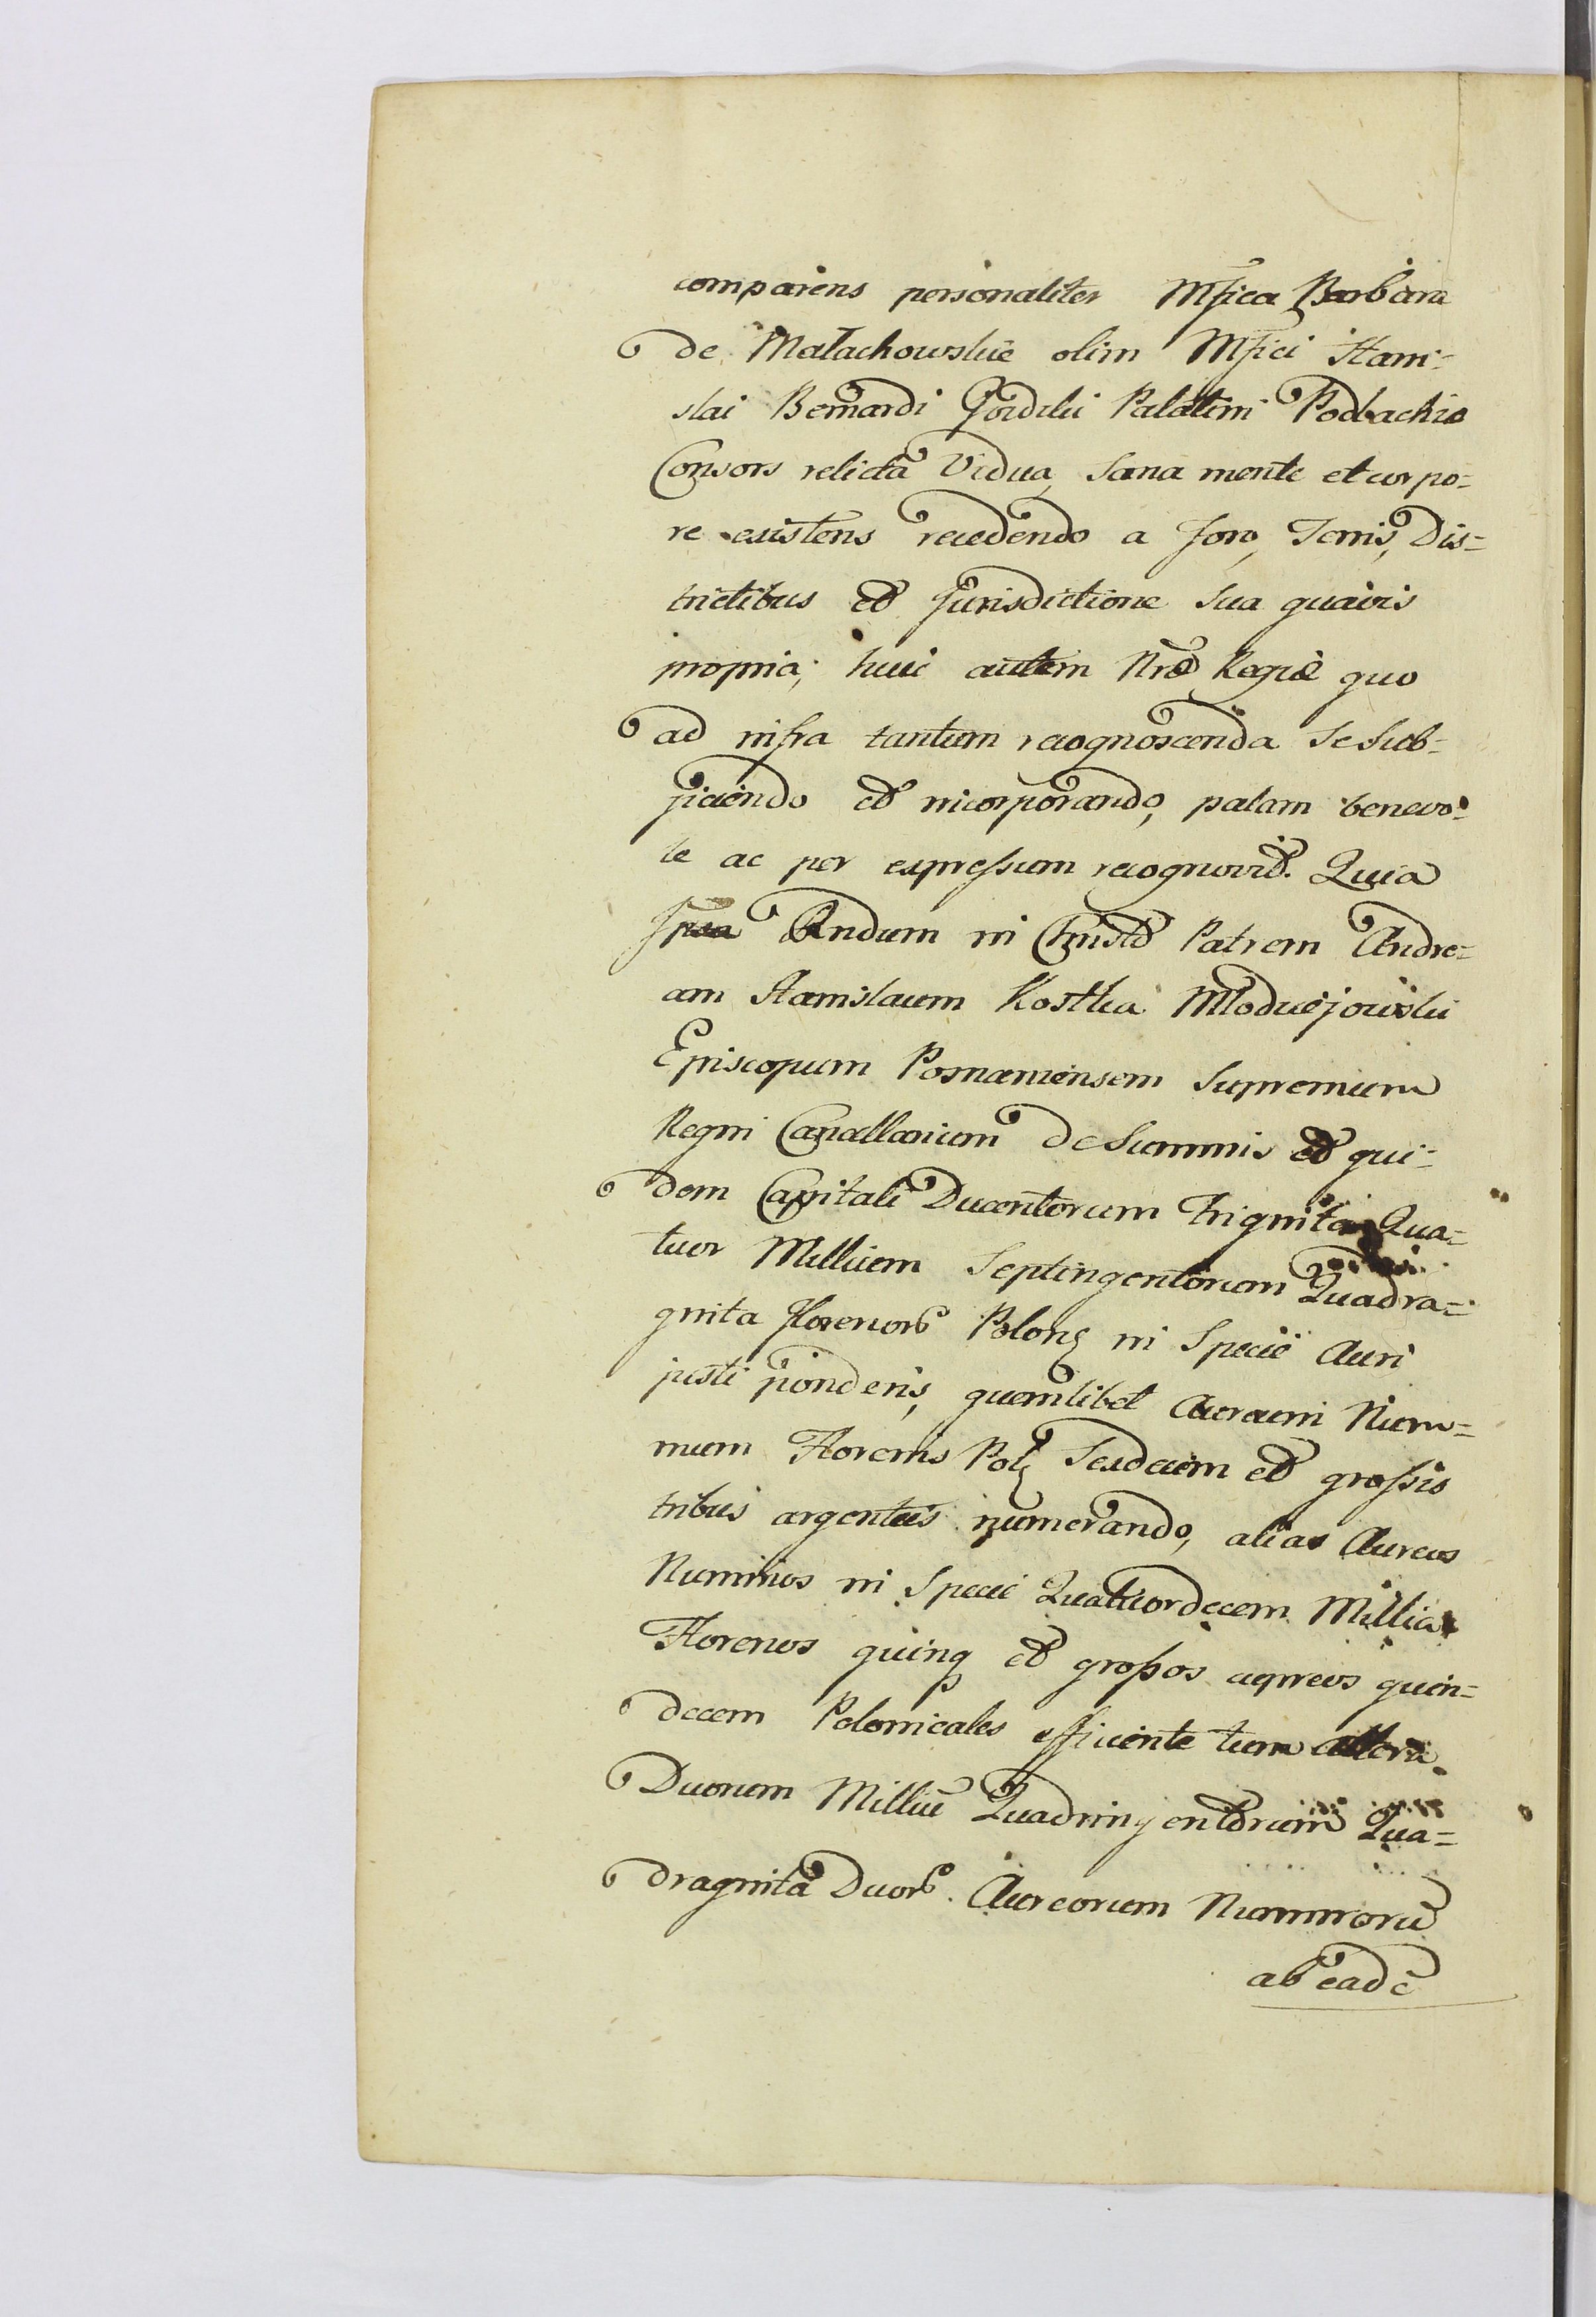 comparens personaliter Mfica Barbara
de Małachowskie olim Mfici Stani=
slai Bernardi Gozdzki Palatini Podlachiæ
Consors relicta Vidua, sana mente et corpo=
re existens recedendo a foro, Terris, Dis=
trictibus et Jurisdictione sua quavis
propria; huic autem Nræ Regiæ quo
ad infra tantum recognoscenda se sub=
jiciendo et incorporando, palam benevo=
le ac per expressum recognovit. Quia
Ipsa Rndum in Christo Patrem Andre=
am Stanislaum Kostka Młodziejowski
Episcopum Posnaniensem Supremum
Regni Cancellarium de Summis et qui=
dem Capitali Ducentorum Triginta Qua=
tuor Millium Septingentorum Quadra=
ginta Florenorũ Polonˢ in Specie Auri
justi ponderis, quemlibet Aureum Num=
mum Florenis Polˢ Sexdecim et grossis
tribus argenteis numerando, alias Aureos
Nummos in Specie Quatuordecem Millia
Florenos quinq et grossos cupreos quin=
decem Polonicales efficiente tum altera
Duorum Milliũ Quadringentorum Qua=
draginta Duorũ Aureorum Nummorũ
ab eadẽ